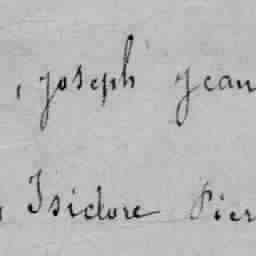 , Joseph Jean
Isidore Pier